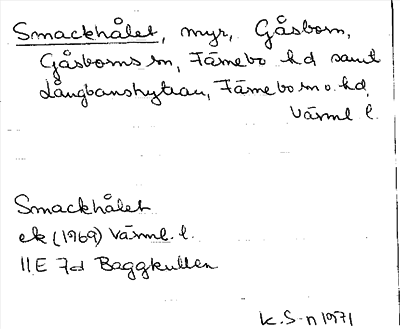 Smackhålet, myr, Gåsborn,
Gåsborns sn, Färnebo hd samt
Långbanshyttan, Färnebo sn o. hd,
Värml l.
Smackhålet
ek (1969) Värml. l.
11E 7d Baggkullen
K. S-n 1971